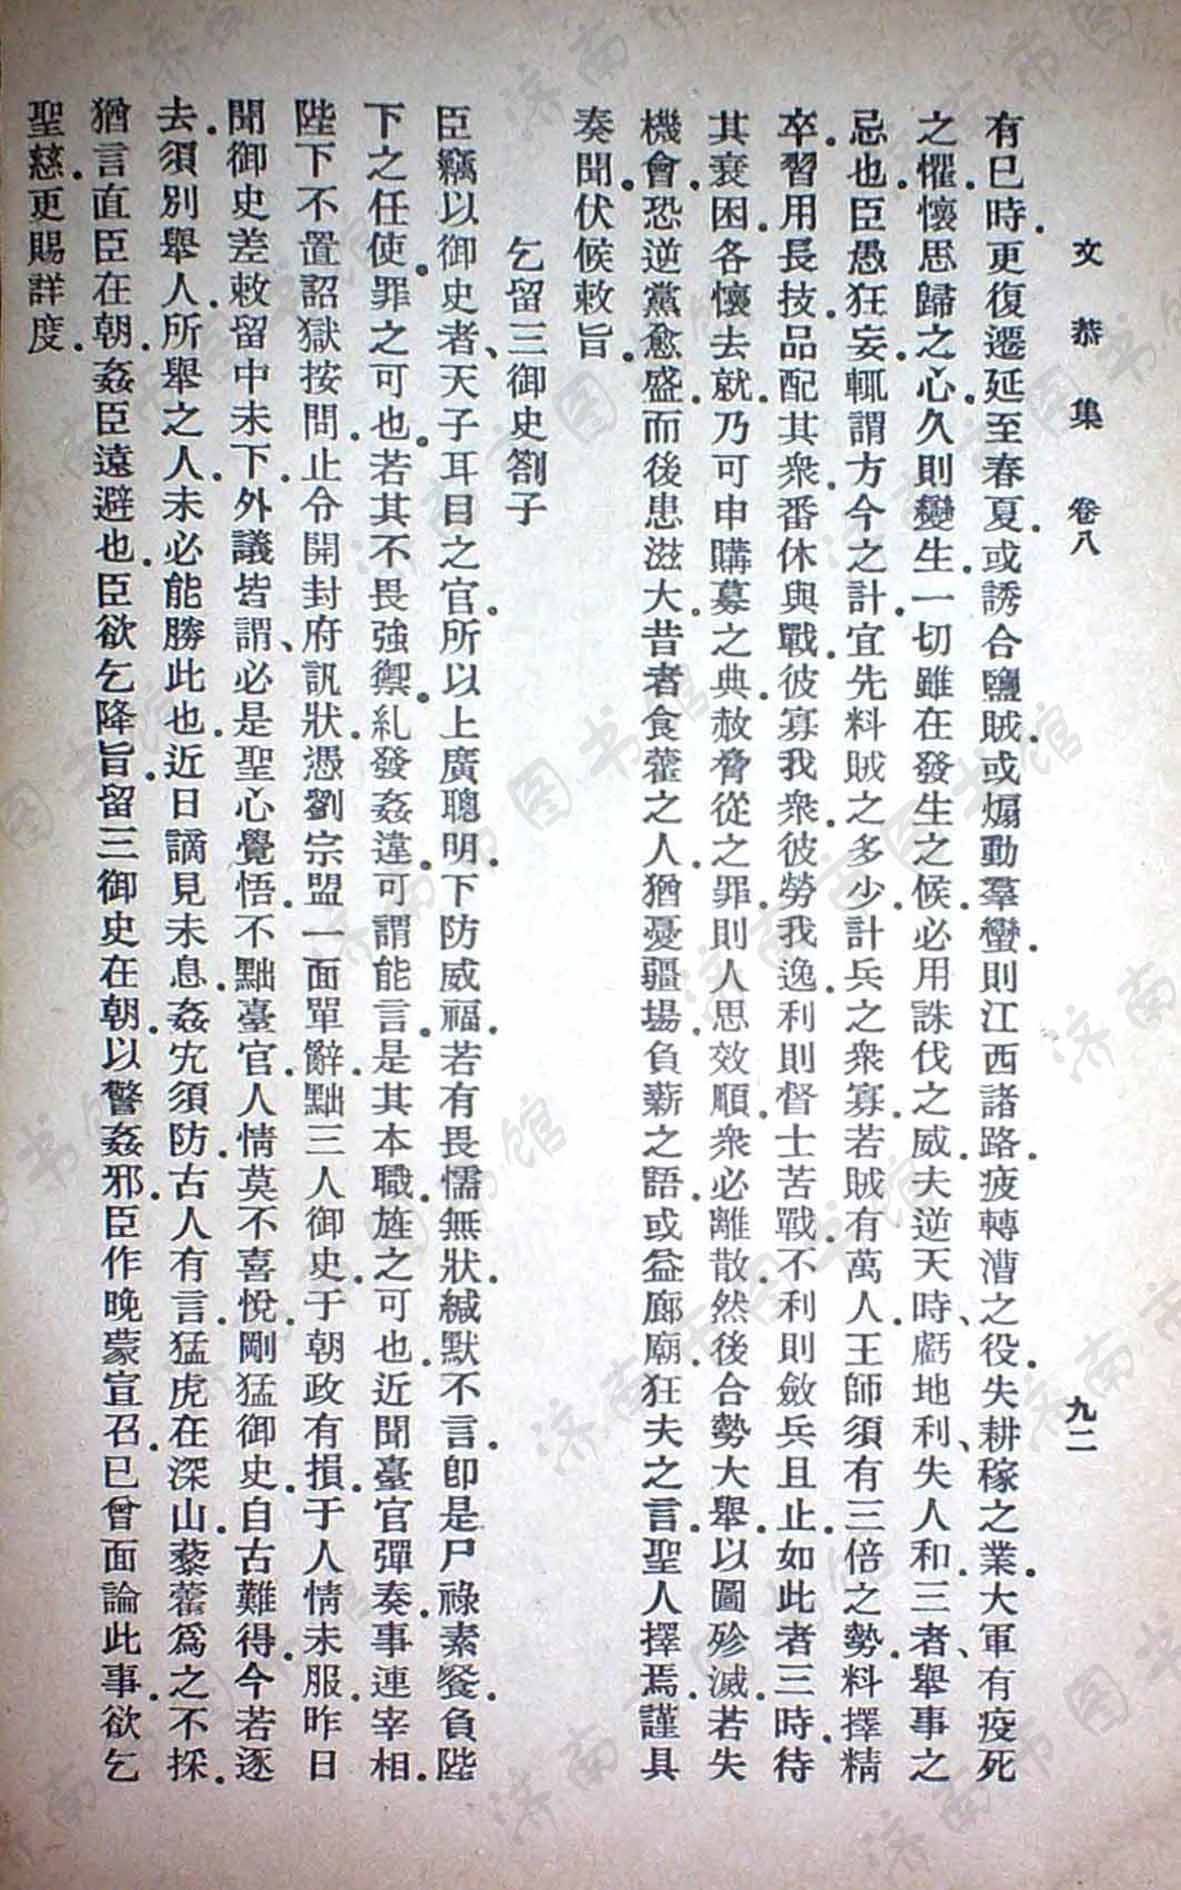 文恭集 卷八 九二
有已時.更復遷延至春夏.或誘合鹽賊.或煽動羣蠻.則江西諸路.疲轉漕之役.失耕稼之業.大軍有疫死
之懼.懷思歸之心.久則變生.一切雖在發生之候.必用誅伐之威.夫逆天時、虧地利、失人和.三者、舉事之
忌也.臣愚狂妄.輒謂方今之計.宜先料賊之多少.計兵之衆寡.若賊有萬人.王師須有三倍之勢.料擇精
卒.習用長技.品配其衆.番休與戰.彼寡我衆.彼勞我逸.利則督士苦戰.不利則斂兵且止.如此者三時.待
其衰困.各懷去就.乃可申購募之典.赦脅從之罪.則人思效順.衆必離散.然後合勢大舉.以圖殄滅.若失
機會.恐逆黨愈盛.而後患滋大.昔者食藿之人.猶憂疆場.負薪之語.或益廊廟.狂夫之言.聖人擇焉.謹具
奏聞.伏候敕旨.
乞留三御史劄子
臣竊以御史者、天子耳目之官.所以上廣聰明.下防威福.若有畏懦無狀.緘默不言.卽是尸祿素餐.負陛
下之任使.罪之可也.若其不畏強禦.糺發姦違.可謂能言.是其本職.旌之可也.近聞臺官彈奏.事連宰相.
陛下不置詔獄按問.止令開封府訊狀.憑劉宗盟一面單辭.黜三人御史.于朝政有損.于人情未服.昨日
聞御史差敕留中未下.外議皆謂、必是聖心覺悟.不黜臺官.人情莫不喜悅.剛猛御史.自古難得.今若逐
去.須別舉人.所舉之人.未必能勝此也.近日讁見未息.姦宄須防.古人有言.猛虎在深山.藜藿爲之不採.
猶言直臣在朝.姦臣遠避也.臣欲乞降旨.留三御史在朝.以警姦邪.臣作晚蒙宣召.已曾面論此事.欲乞
聖慈.更賜詳度.
济南市图书馆